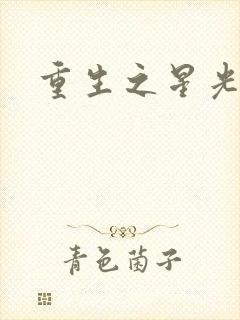 重生之星光
青色菌子